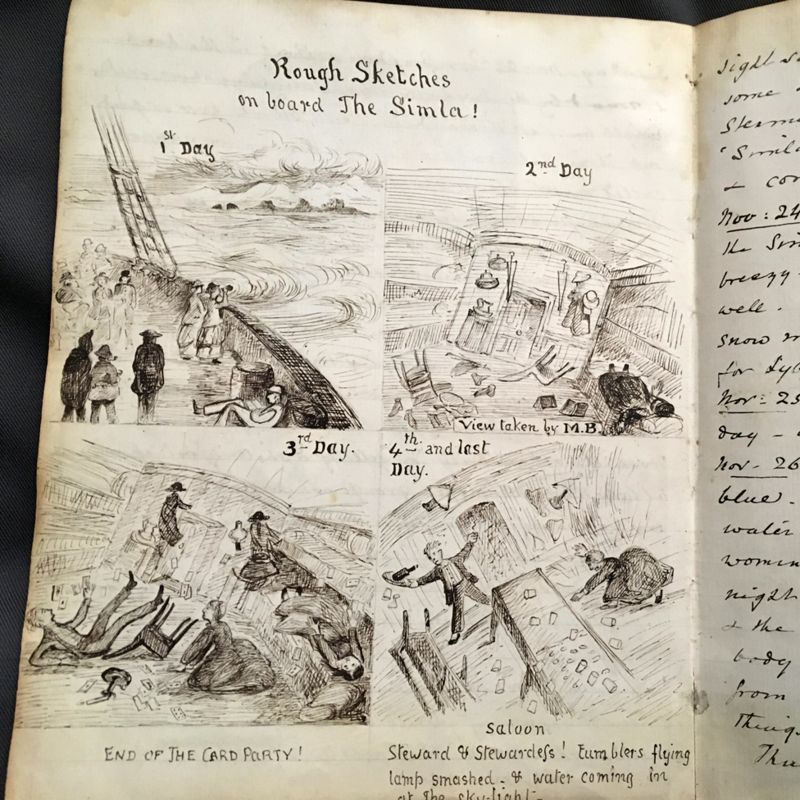 Rough Sketches
on board The Simla!
1st Day
2nd Day
View taken by M.B.
3rd Day.
4th and last
Day.
END OF THE CARD PARTY!
Saloon
Steward & Stewardess! Tumblers flying
lamp smashed - & water coming in
at the sky-light -
sight
some
Steam
& con
Nov: 24
the Sim
breezy
well.
snow
for
Nov: 25
day -
Nov - 26
blue.
water
women
night
& the
body
from
things